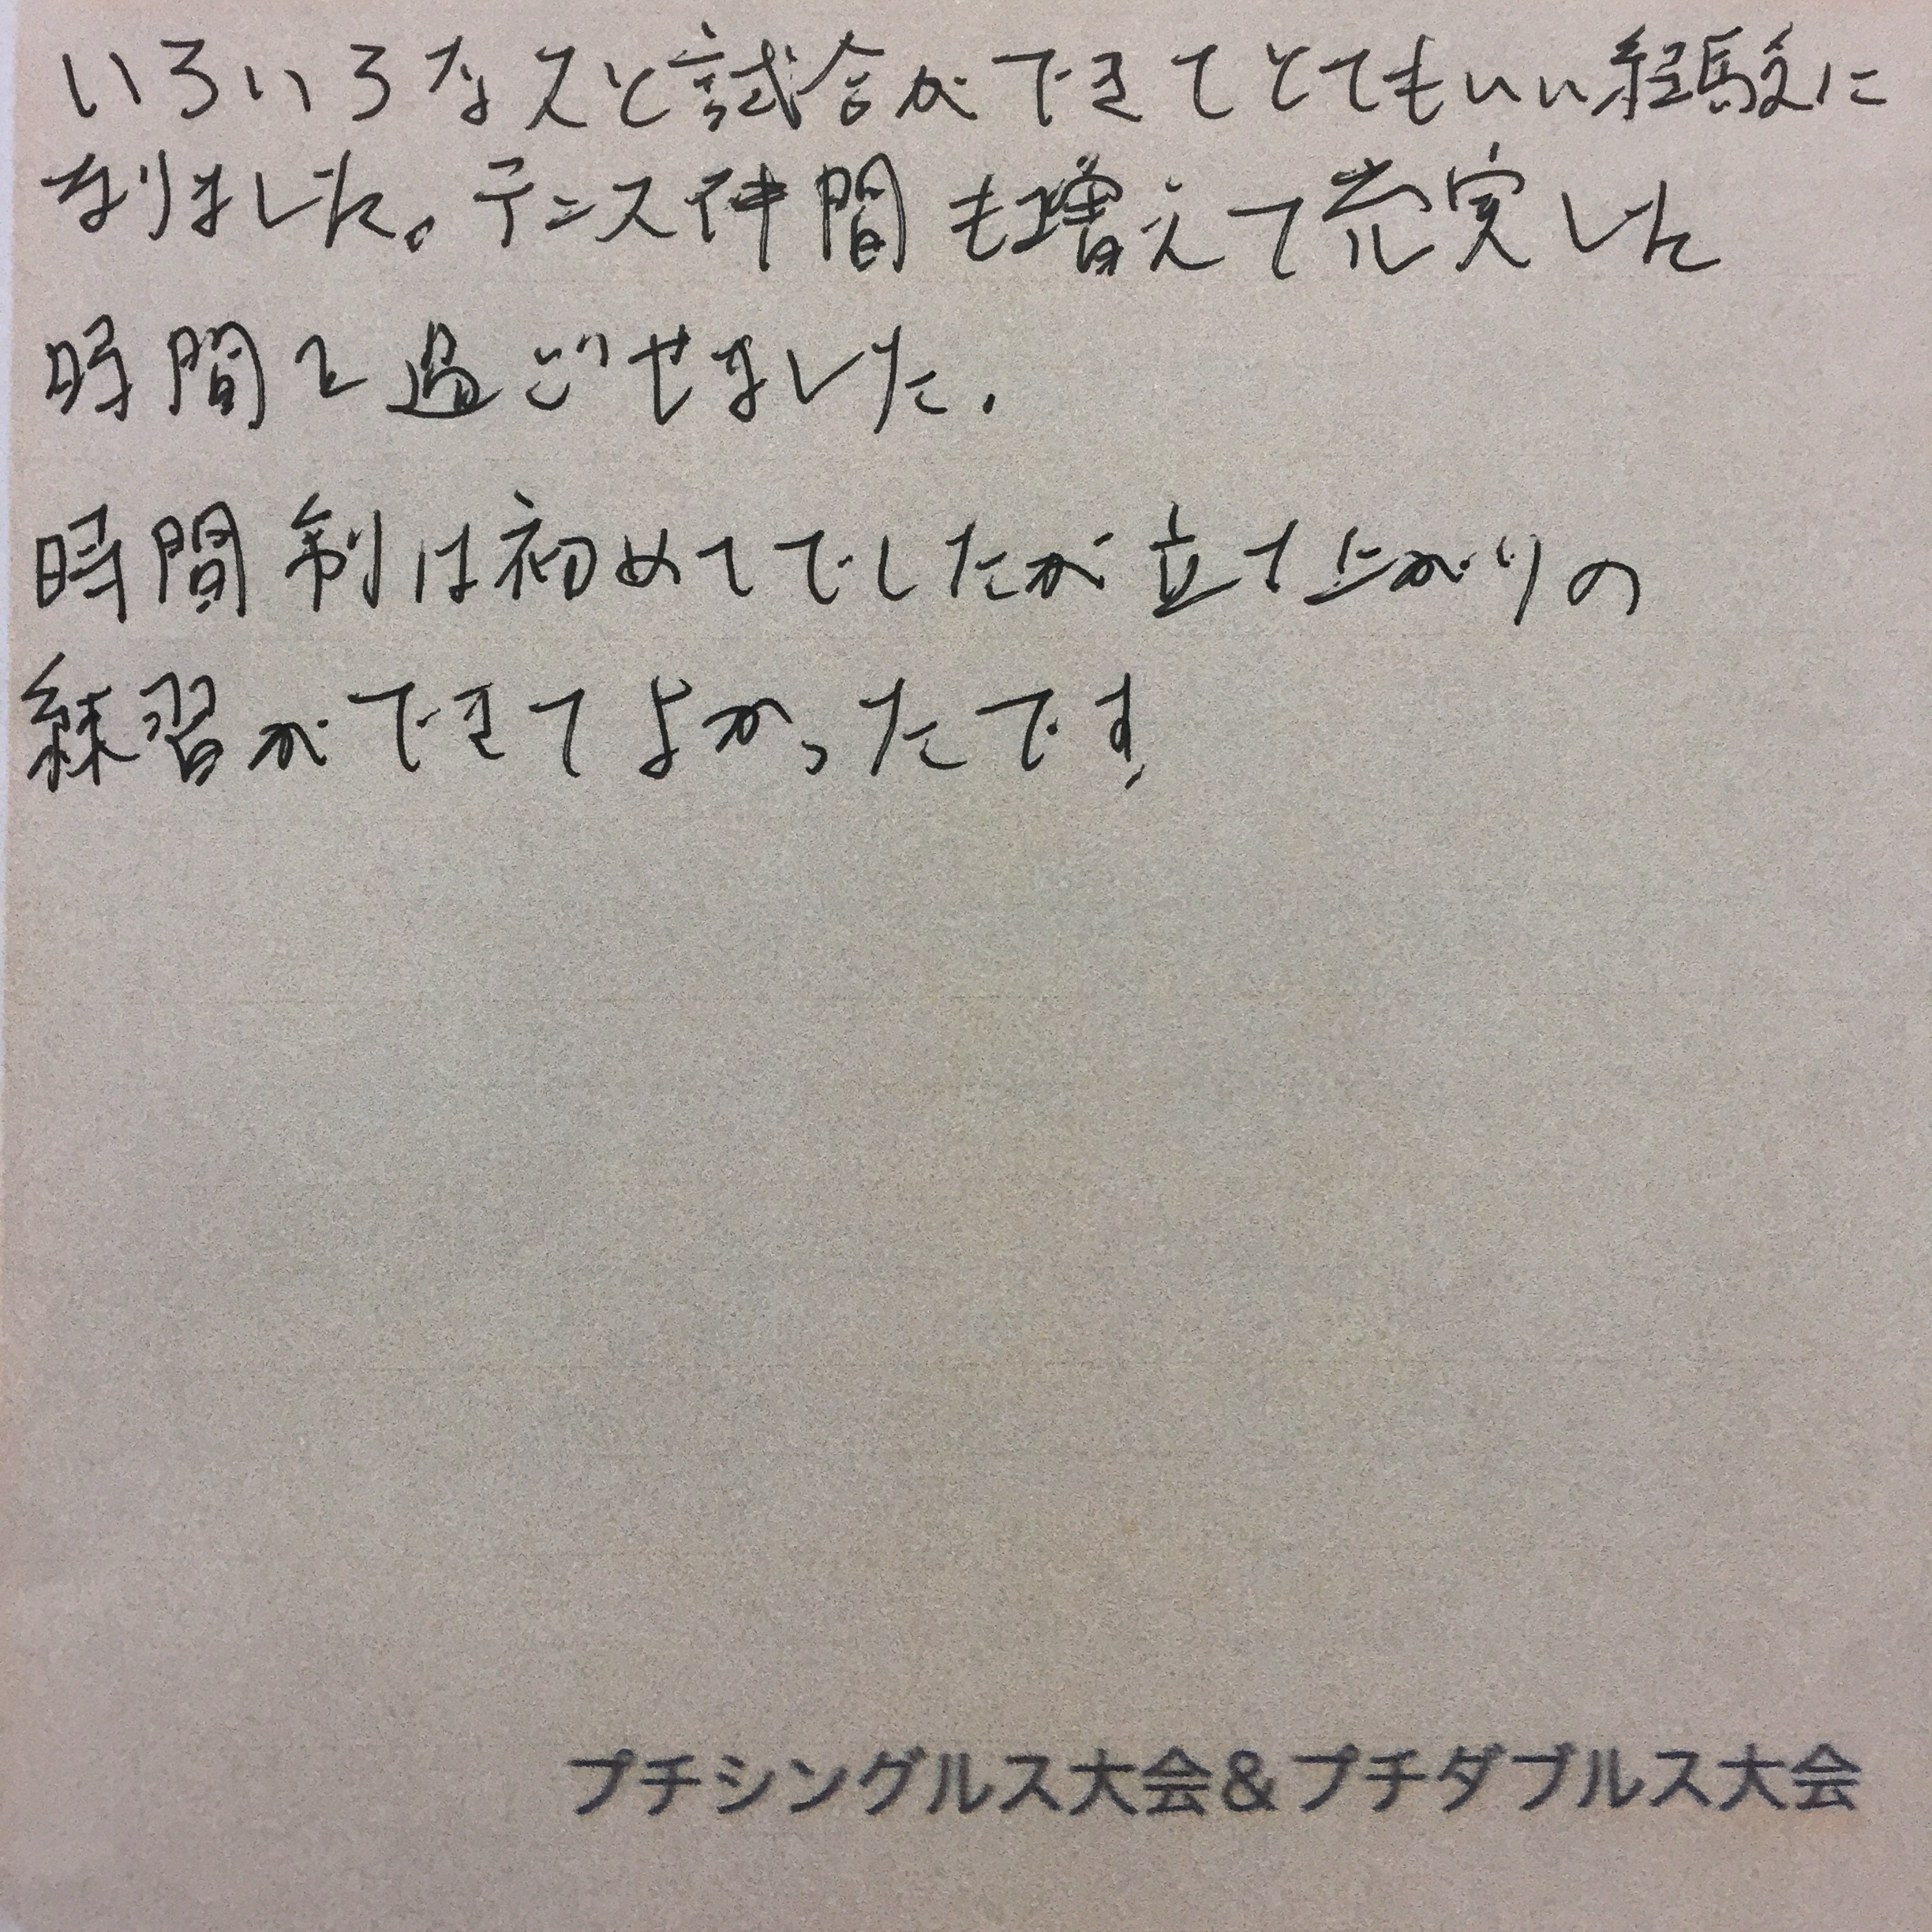 いろいろな人と試合ができてとてもいい経験に
なりました。テニス仲間も増えて充実した
時間を過ごせました.
時間制は初めてでしたが立ち上がりの
練習ができてよかったです
プチシングルス大会&プチダブルス大会